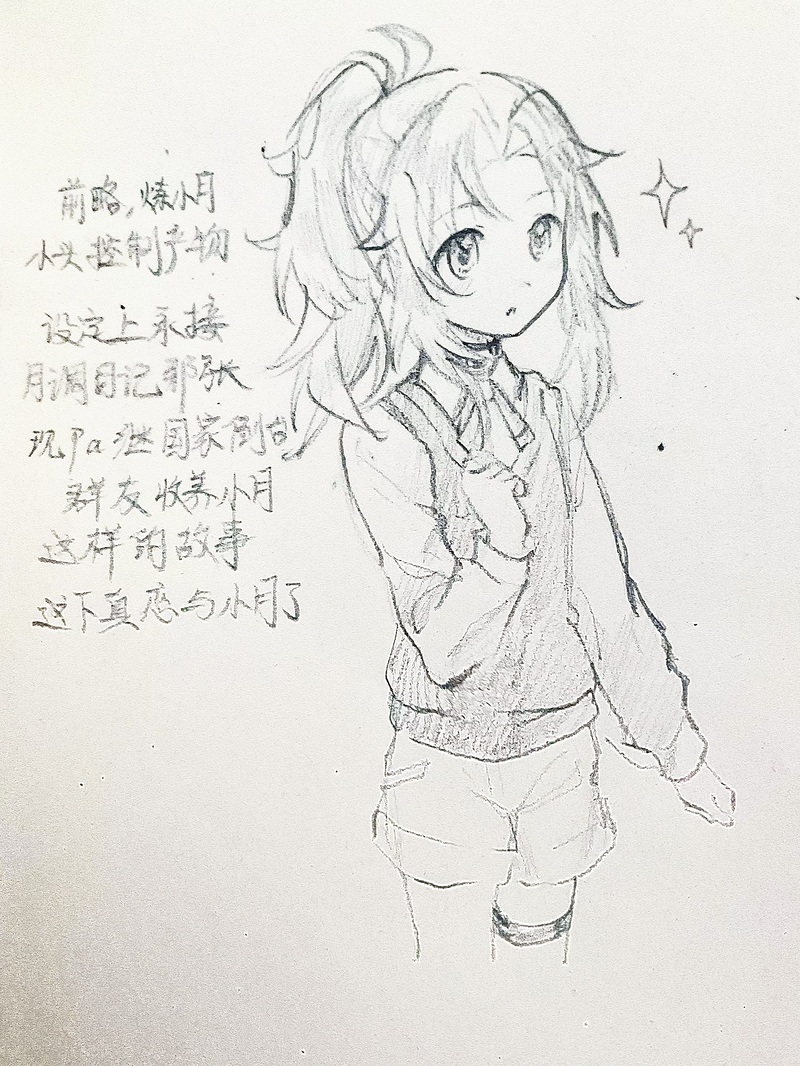 前略,炼小月
小头控制产物
设定上承接
月涧日记那张
现pa继国家倒台
群友收养小月
这样的故事
这下真恋与小月了